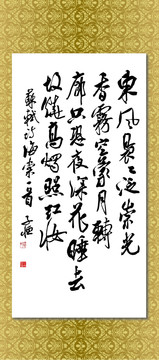 東風裊々泛崇光
香霧空蒙月轉
廊只恐夜深花睡去
故燒高燭照紅妝
蘇軾詩海棠一首